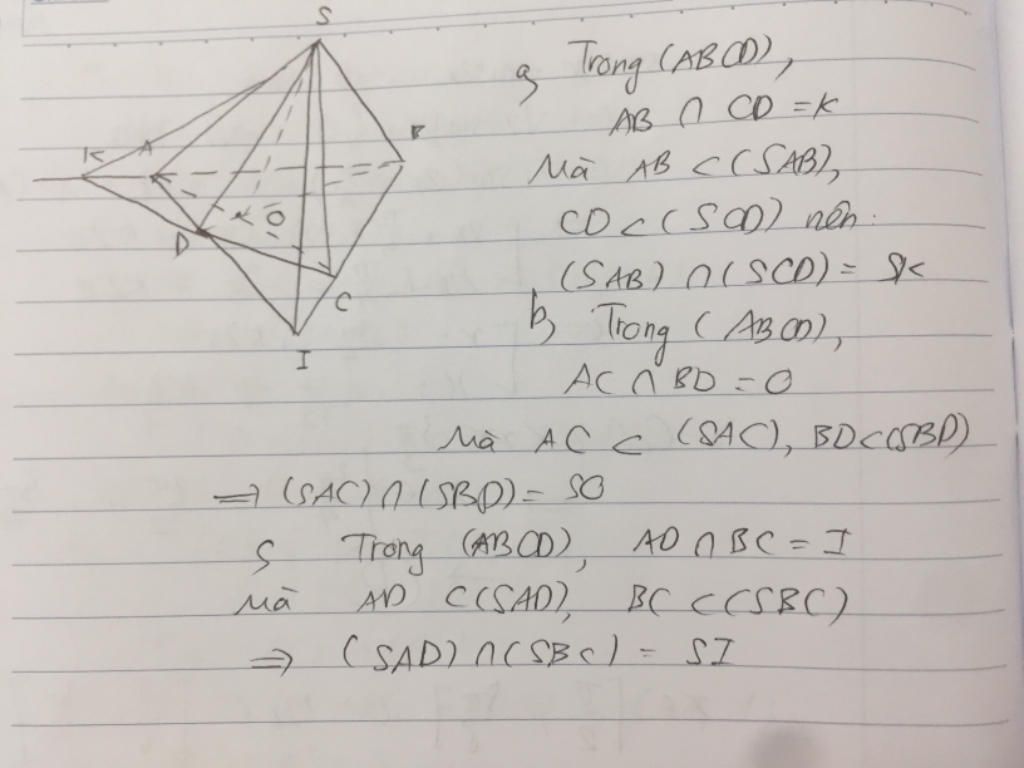 S
K A B
D O
C
I
a, Trong (ABCD),
AB ∩ CD = K
Mà AB ⊂ (SAB),
CD ⊂ (SCD) nên
(SAB) ∩ (SCD) = SK
b, Trong (ABCD),
AC ∩ BD = O
Mà AC ⊂ (SAC), BD ⊂ (SBD)
⇒ (SAC) ∩ (SBD) = SO
c, Trong (ABCD), AD ∩ BC = I
Mà AD ⊂ (SAD), BC ⊂ (SBC)
⇒ (SAD) ∩ (SBC) = SI